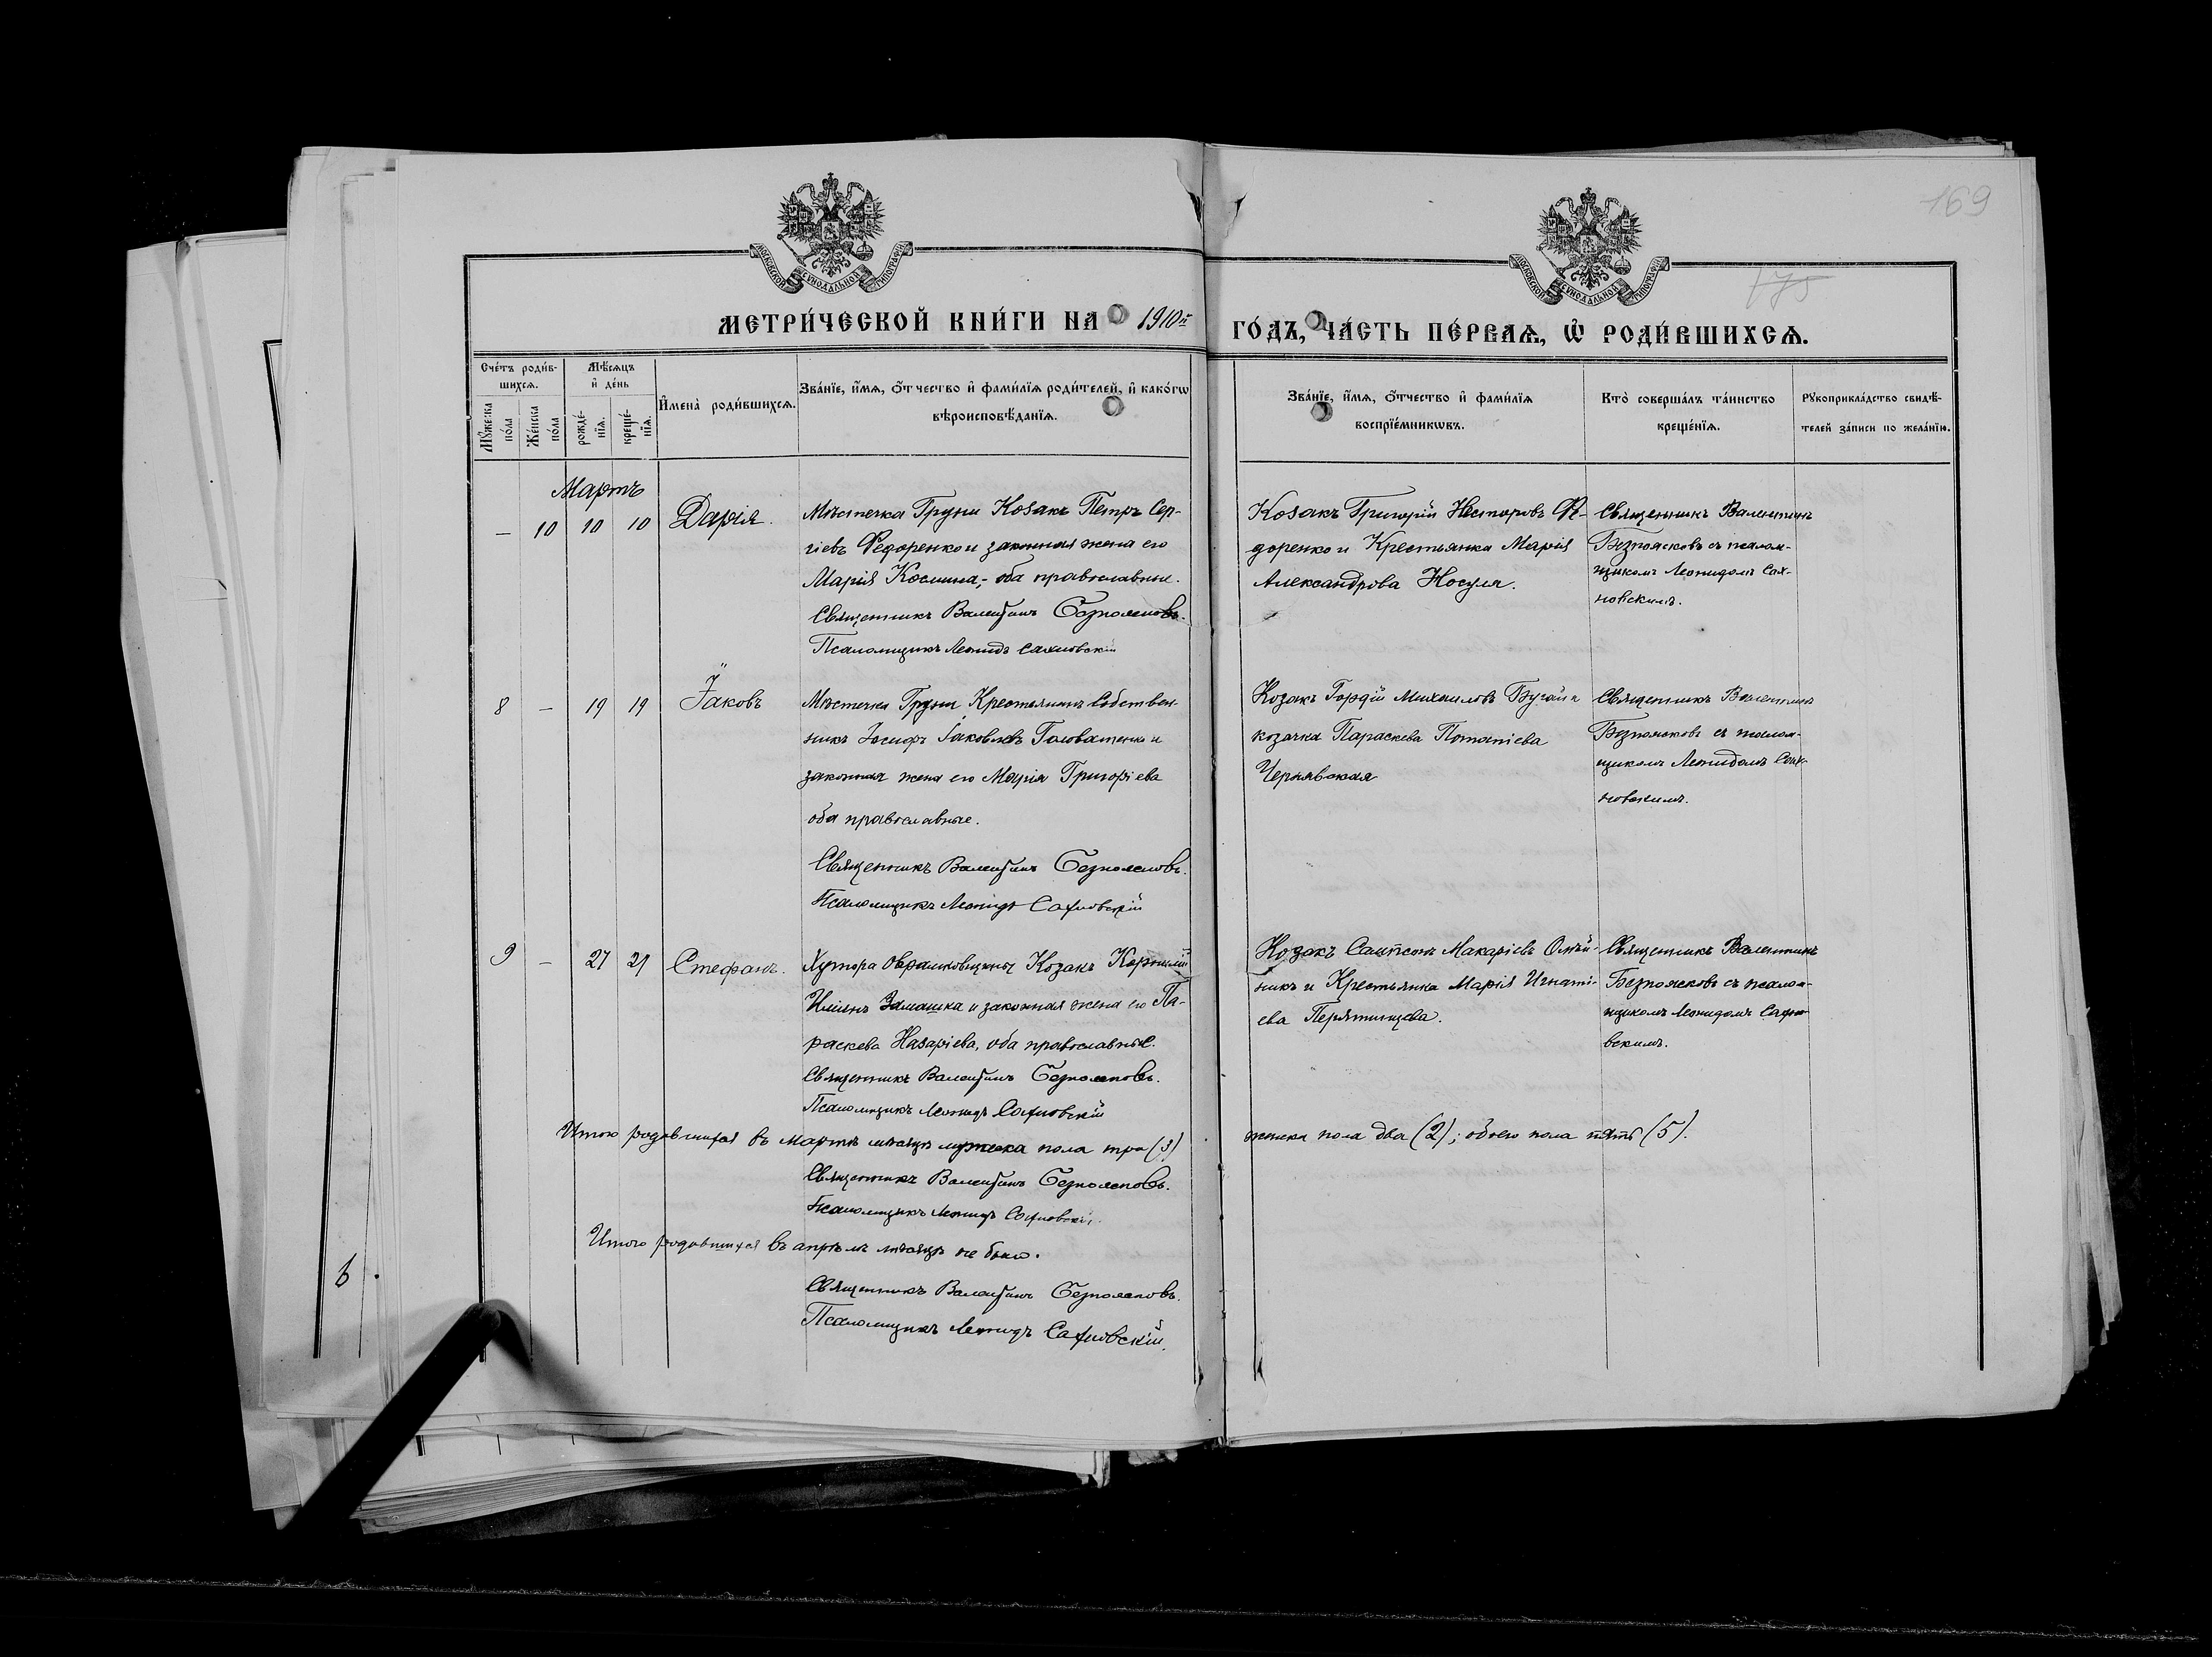 169
175
МОСКОВСКОЙ СѴНОДАЛЬНОЙ ТИПОГРАФІИ
МОСКОВСКОЙ СѴНОДАЛЬНОЙ ТИПОГРАФІИ
МЕТРИ́ЧЕСКОЙ КНИ́ГИ НА 1910й ГО́ДЪ, ЧА́СТЬ ПЕ́РВАѦ, Ѡ РОДИ́ВШИХСѦ.
Сче́тъ роди́в-
шихсѧ.
Мꙋ́жеска по́ла
Же́нска по́ла
Мѣ́сѧцъ
и҆ де́нь
рожде́-
нїѧ.
креще́-
нїѧ.
И҆мена̀ роди́вшихсѧ.
Зва́нїе, и҆́мѧ, ѻ҆́тчество и҆ фами́лїѧ роди́телей, и҆ како́гѡ
вѣроисповѣ́данїѧ.
Зва́нїе, и҆́мѧ, ѻ҆́тчество и҆ фами́лїѧ
воспрїе́мникѡвъ.
Кто̀ соверша́лъ та́инство
креще́нїѧ.
Рꙋкоприкла́дство свидѣ́-
телей за́писи по жела́нїю.
Мартъ
— 10 10 10 Дарія.
Мѣстечка Груни Козакъ Петръ Сер-
гіевъ Федоренко и законная жена его
Марія Космина,- оба православные.
Священникъ Валентинъ Безпоясковъ.
Псаломщикъ Леонидъ Сахновскій
Козакъ Григорій Несторовъ Фе-
доренко и Крестьянка Марія
Александрова Носуля.
Священникъ Валентинъ
Безпоясковъ съ псалом-
щикомъ Леонидомъ Сах-
новскимъ.
8 — 19 19 Іаковъ
Мѣстечка Груни Крестьянинъ Собствен-
никъ Іосифъ Іаковлевъ Головатенко и
законная жена его Марія Григоріева
оба православные.
Священникъ Валентинъ Безпоясковъ.
Псаломщикъ Леонидъ Сахновскій
Козакъ Гордій Михаиловъ и
козачка Параскева Потапіева
Чернявская
Священникъ Валентинъ
Безпоясковъ съ псалом-
щикомъ Леонидомъ Сах-
новскимъ.
9 — 27 27 Стефанъ.
Хутора Козакъ Корнилій
и законная жена его Па-
раскева Назаріева, оба православные.
Священникъ Валентинъ Безпоясковъ.
Псаломщикъ Леонидъ Сахновскій
Козакъ Сампсонъ Макаріевъ Олѣй-
никъ и Крестьянка Марія Игнаті-
ева Перятинцева.
Священникъ Валентинъ
Безпоясковъ съ псалом-
щикомъ Леонидомъ Сахно-
вскимъ.
Итого родившихся въ Мартѣ мѣсяцѣ мужеска пола три (3) женска пола два (2); обоего пола пять (5).
Священникъ Валентинъ Безпоясковъ.
Псаломщикъ Леонидъ Сахновскій.
Итого родившихся въ апрѣлѣ мѣсяцѣ не было.
Священникъ Валентинъ Безпоясковъ.
Псаломщикъ Леонидъ Сахновскій.